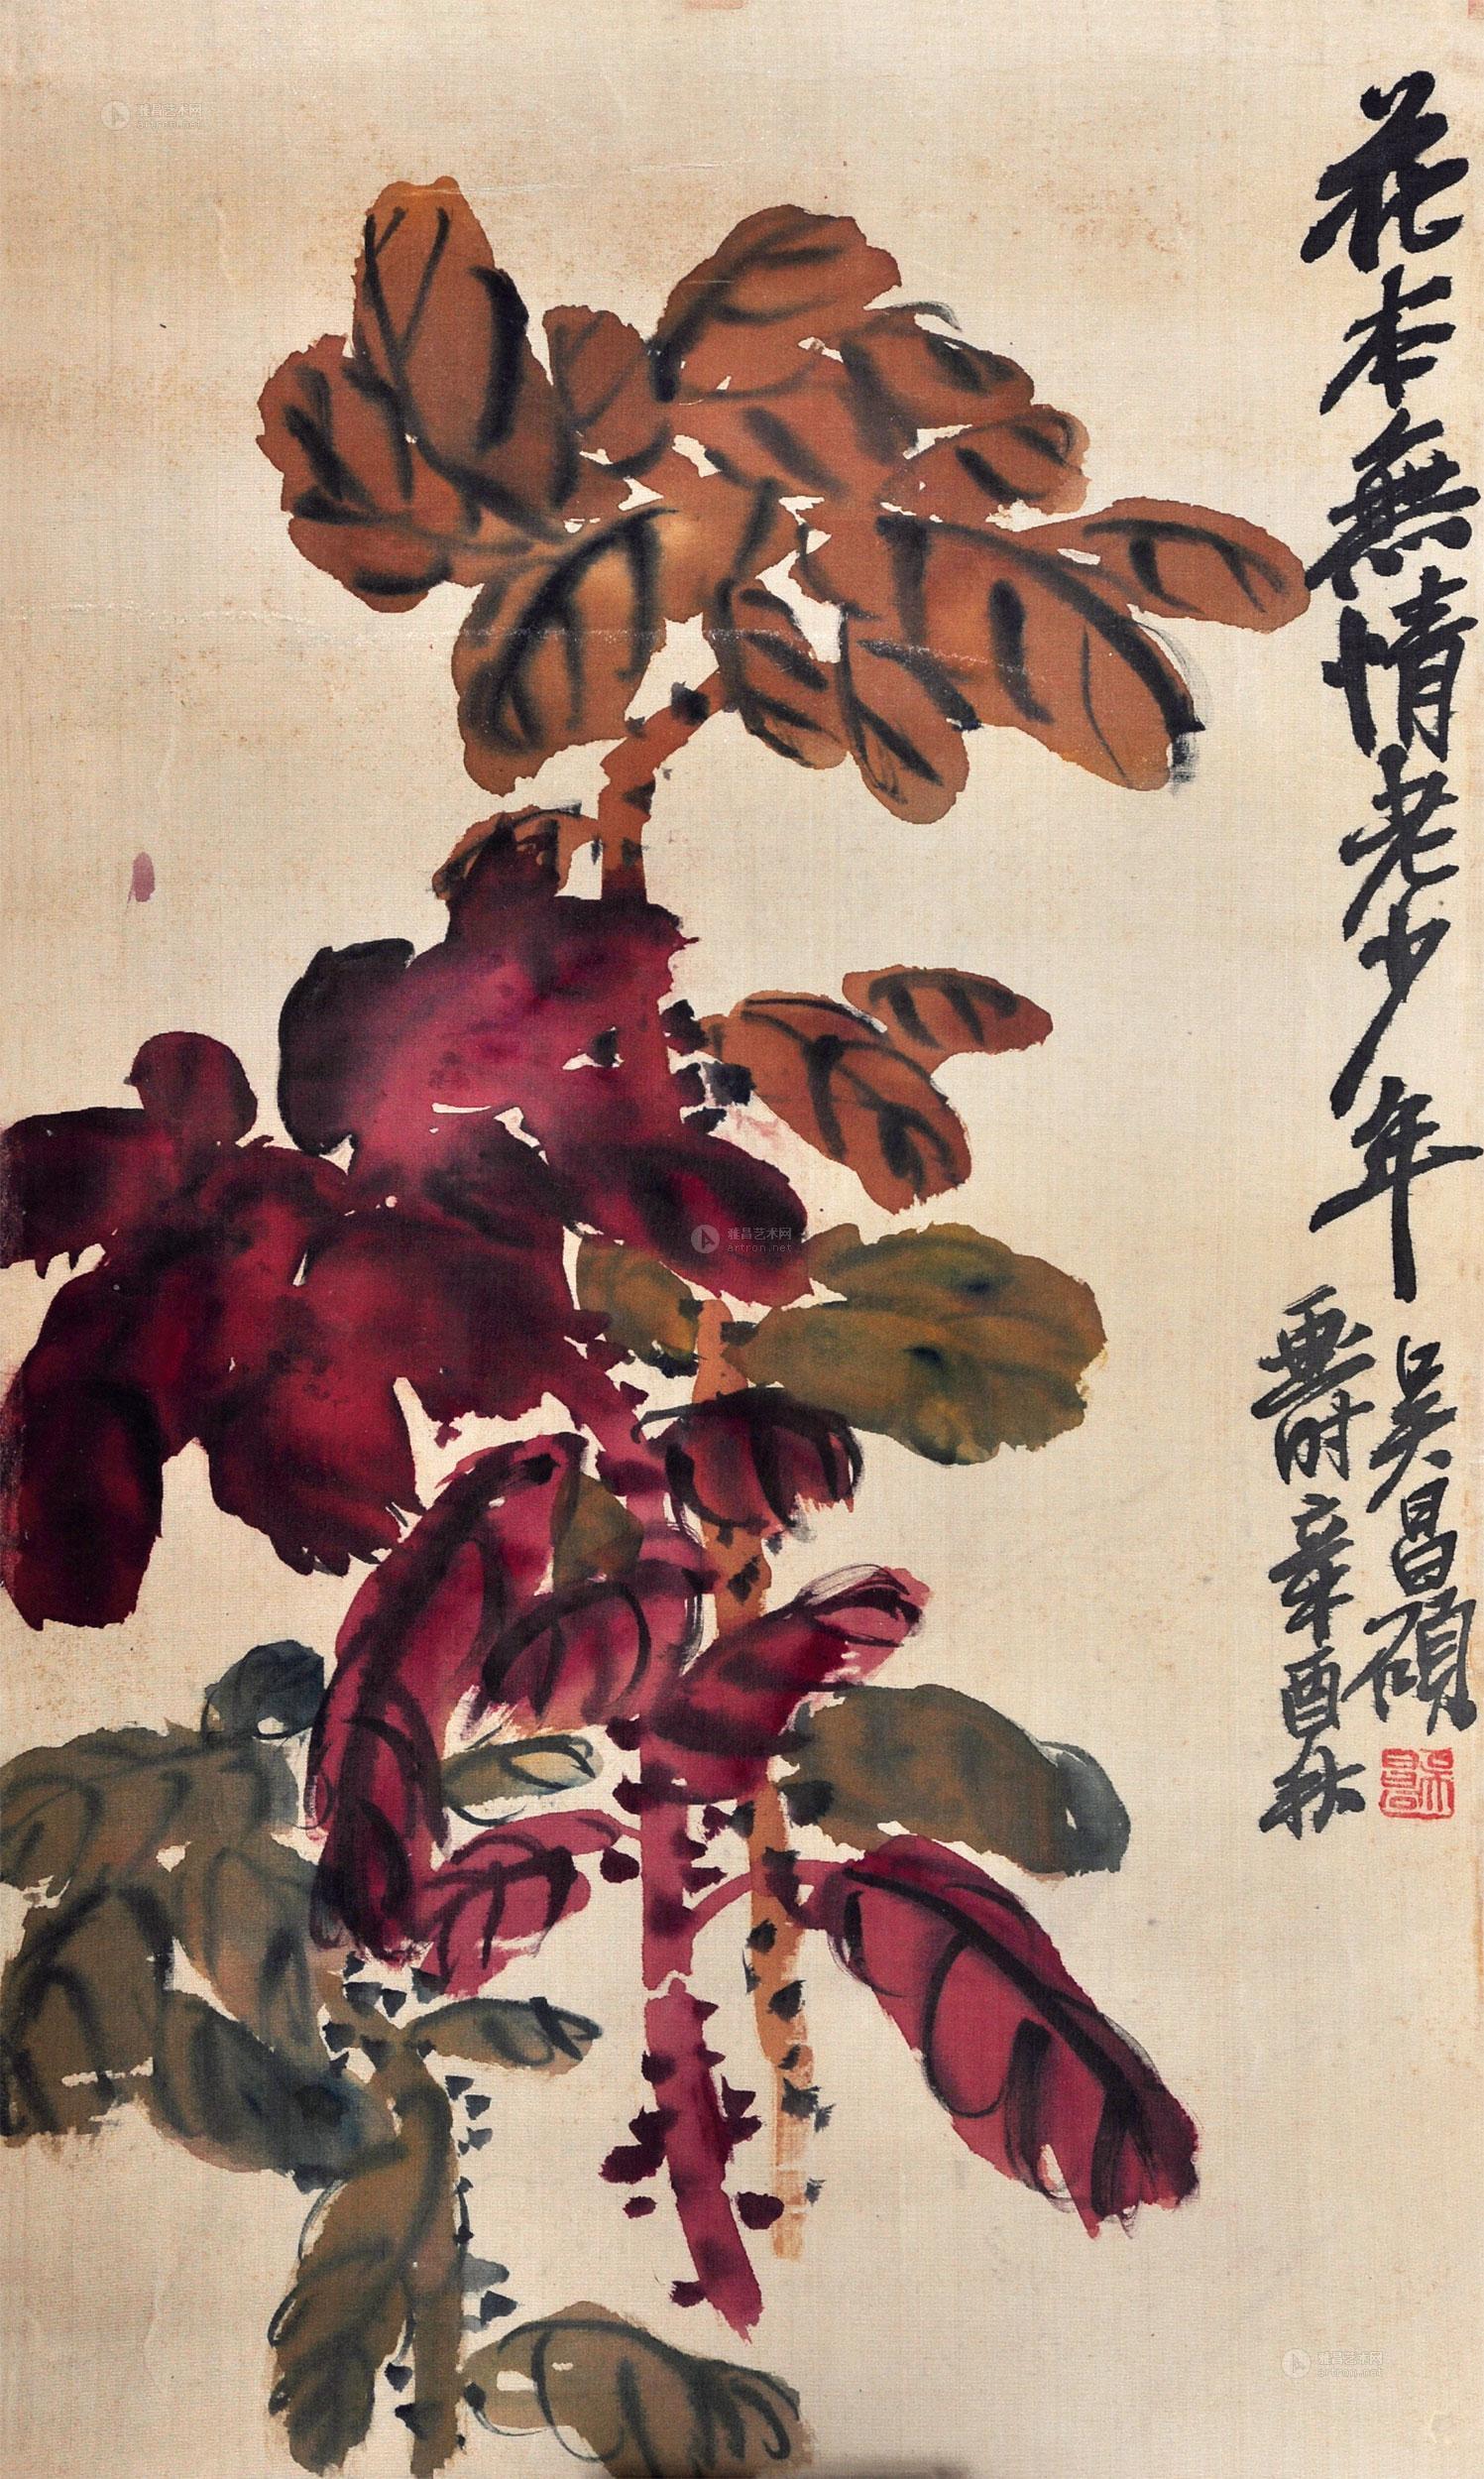 花本無情老少年
吴昌碩
畫时辛酉秋
吳昌
雅昌艺术网
artron.net
雅昌艺术网
artron.net
雅昌艺术网
artron.net